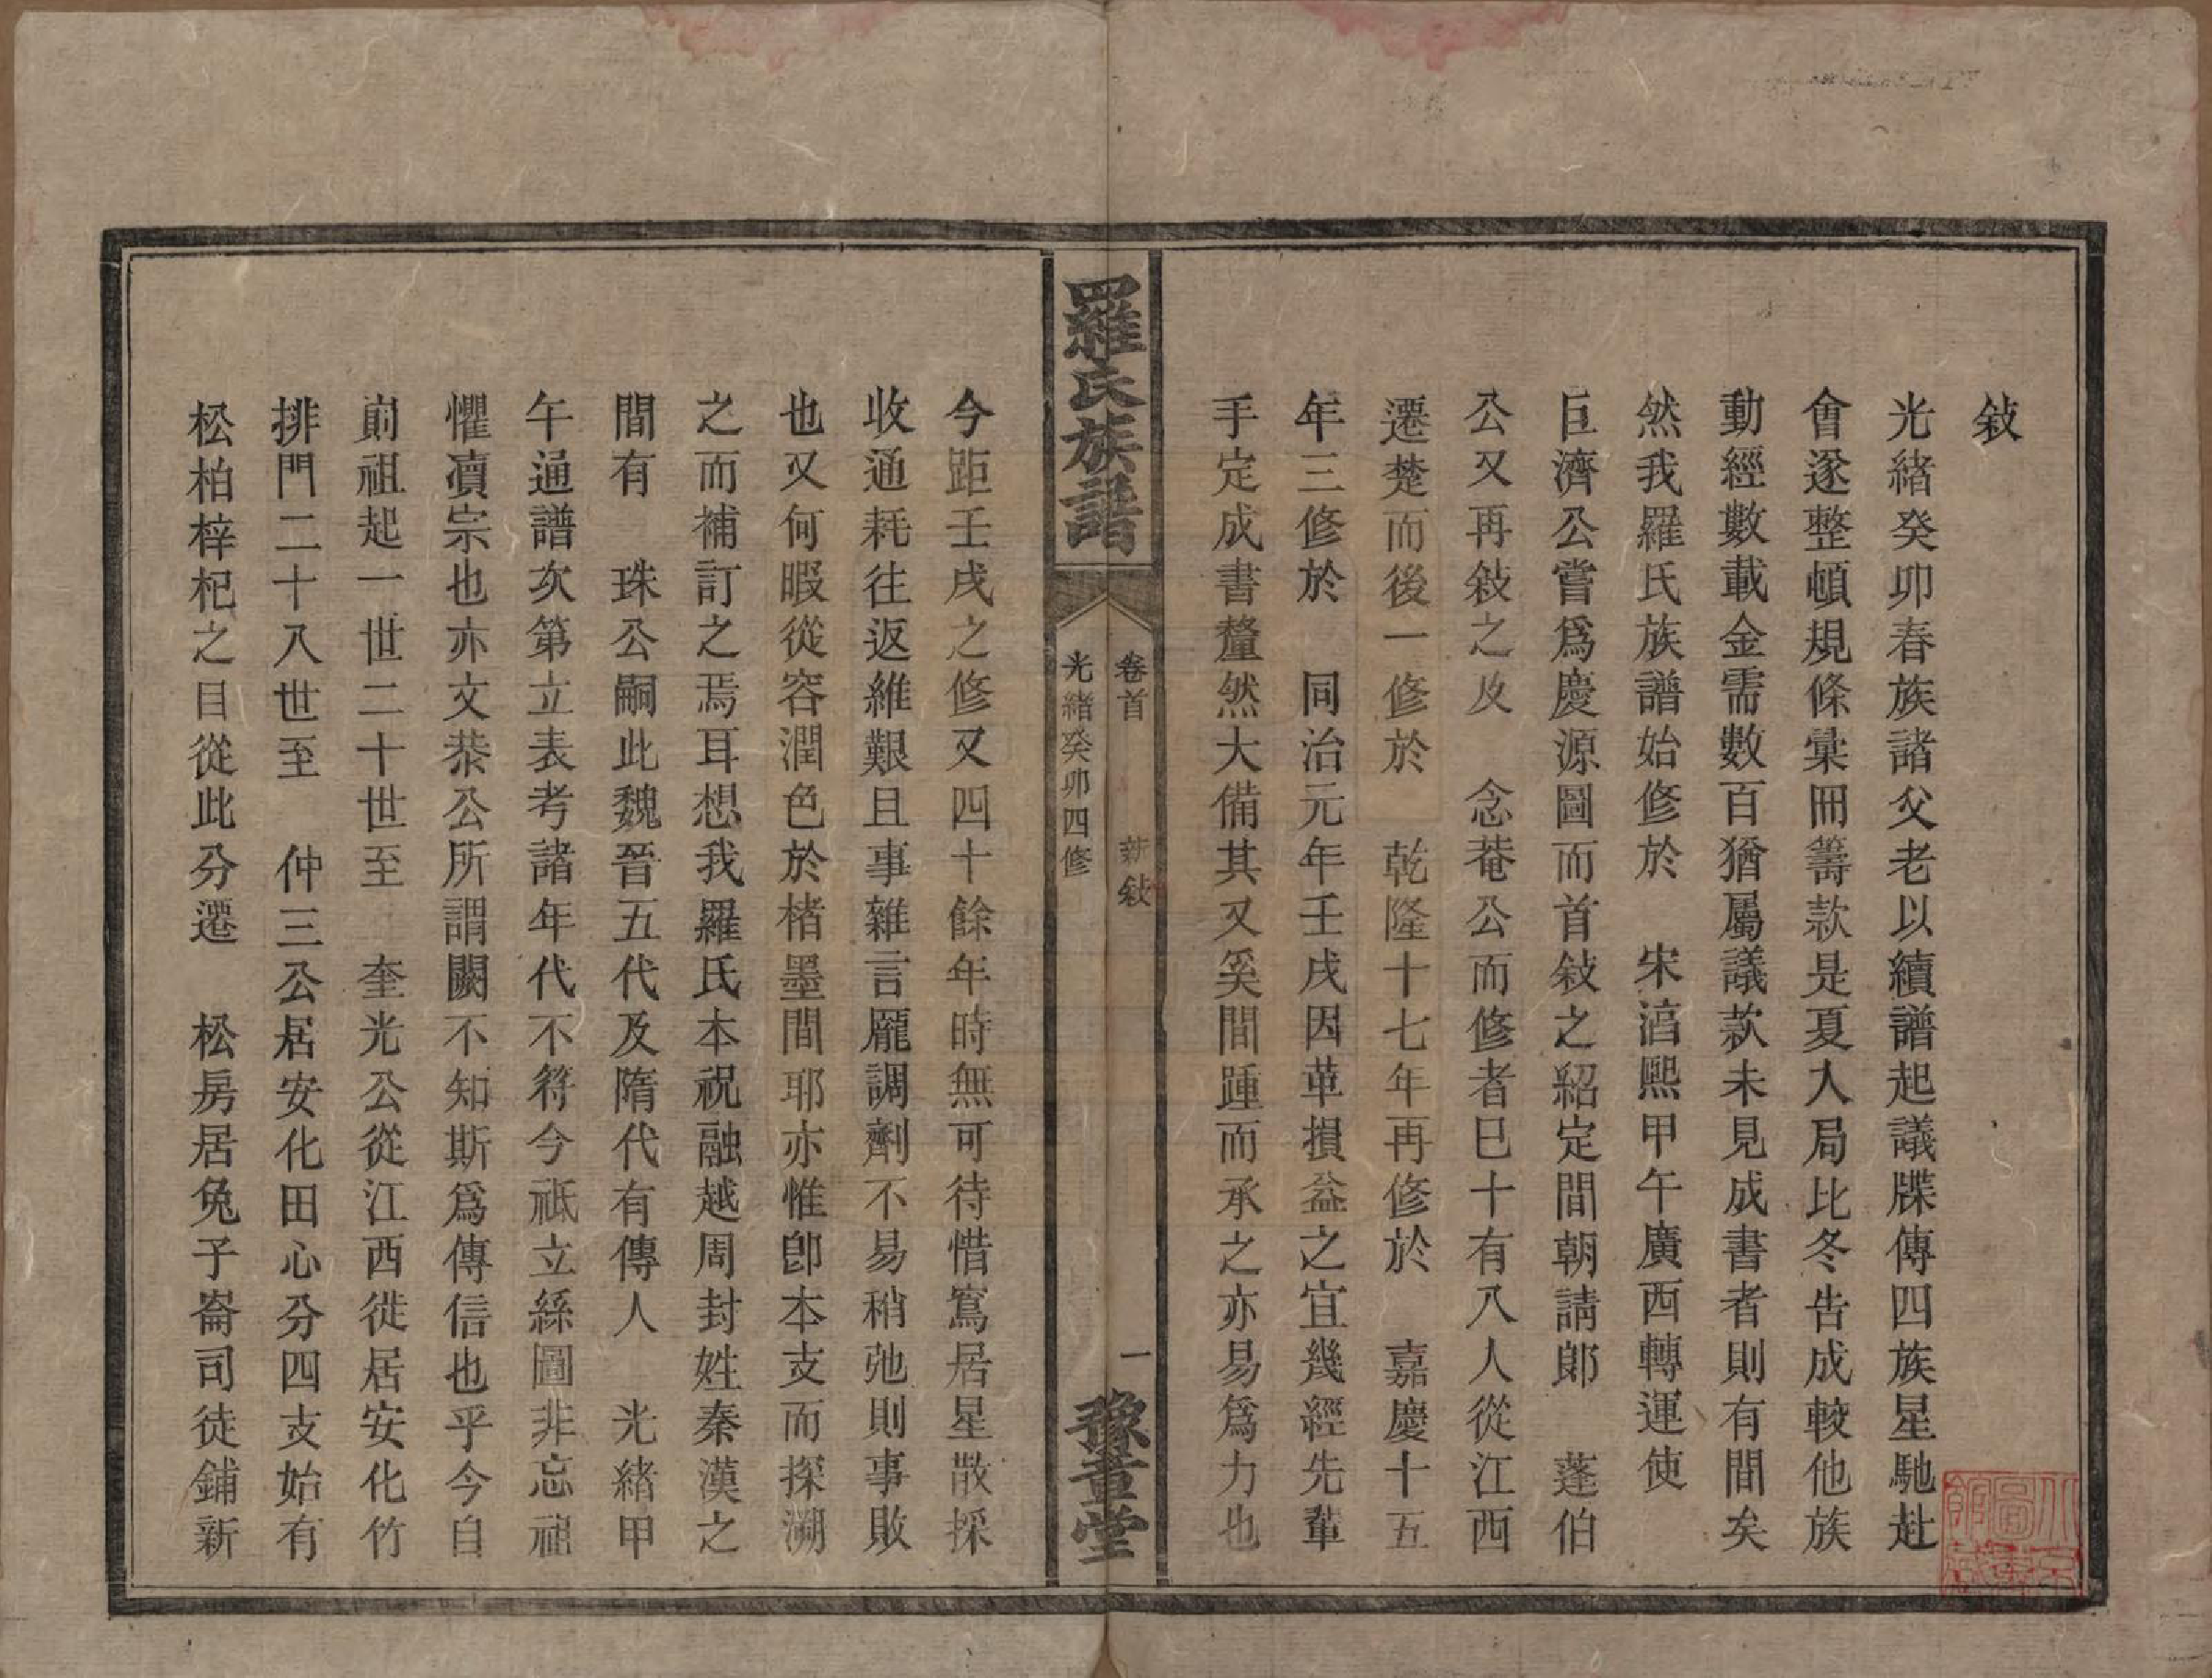 敍
光緒癸卯春族諸父老以續譜起議牒傳四族星馳赴
會遂整頓規條彙冊籌款是夏入局比冬告成較他族
動經數載金需數百猶屬議款未見成書者則有間矣
然我羅氏族譜始修於　宋湻熙甲午廣西轉運使
巨濟公嘗爲慶源圖而首敍之紹定間朝請郎　蓬伯
公又再敍之及　念菴公而修者已十有八人從江西
遷楚而後一修於　乾隆十七年再修於　嘉慶十五
年三修於　同治元年壬戌因革損益之宜幾經先輩
手定成書釐然大備其又奚間踵而承之亦易爲力也
羅氏族譜
卷首　新敍　一
光緒癸卯四修
豫章堂
今距壬戌之修又四十餘年時無可待惜寫居星散採
收通耗往返維艱且事雜言龐調劑不易稍弛則事敗
也又何暇從容潤色於楮墨間耶亦惟卽本支而探溯
之而補訂之焉耳想我羅氏本祝融越周封姓秦漢之
間有　珠公嗣此魏晉五代及隋代有傳人　光緒甲
午通譜次第立表考諸年代不符今祗立綠圖非忘祖
懼凟宗也亦文恭公所謂闕不知斯爲傳信也乎今自
前祖起一世二十世至　奎光公從江西徙居安化竹
排門二十八世至　仲三公居安化田心分四支始有
松柏梓杞之目從此分遷　松房居兔子崙司徒鋪新